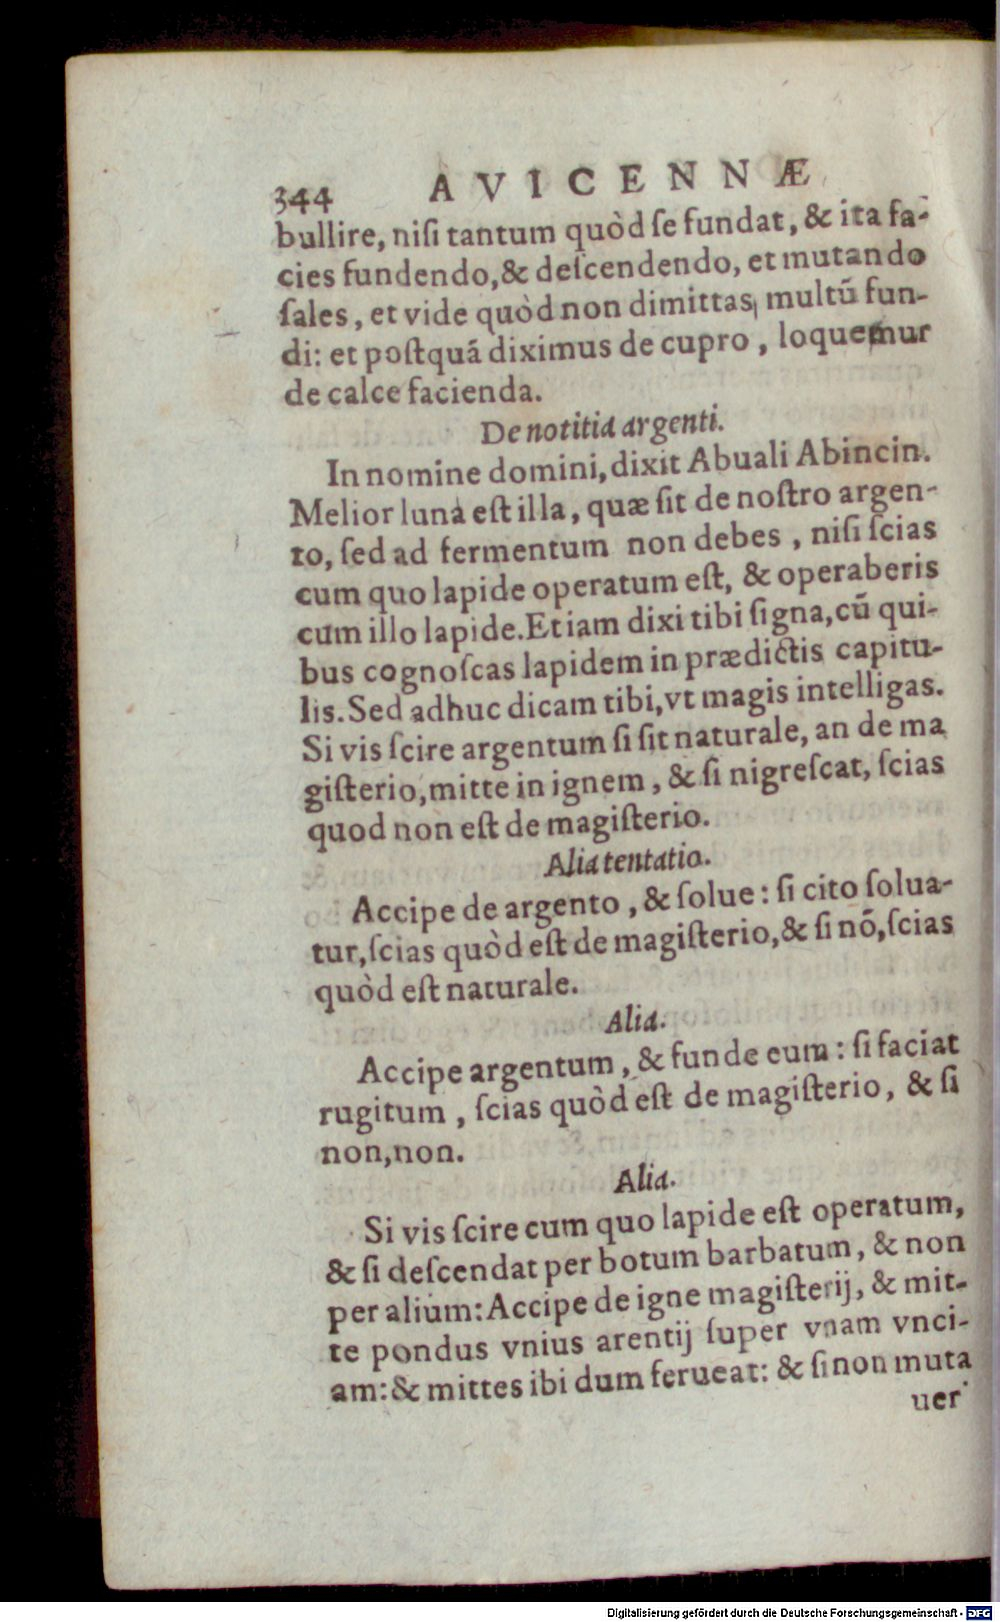 344 AVICENNÆ
bullire, niſi tantum quòd ſe fundat, & ita fa-
cies fundendo, & deſcendendo, et mutando
ſales, et vide quòd non dimittas multũ fun-
di: et poſtquã diximus de cupro, loquemur
de calce facienda.
De notitia argenti.
In nomine domini, dixit Abuali Abincin.
Melior luna eſt illa, quæ ſit de noſtro argen-
to, ſed ad fermentum non debes, niſi ſcias
cum quo lapide operatum eſt, & operaberis
cum illo lapide. Etiam dixi tibi ſigna, cũ qui-
bus cognoſcas lapidem in prædictis capitu-
lis. Sed adhuc dicam tibi, vt magis intelligas.
Si vis ſcire argentum ſi ſit naturale, an de ma
giſterio, mitte in ignem, & ſi nigreſcat, ſcias
quod non eſt de magiſterio.
Alia tentatio.
Accipe de argento, & ſolue: ſi cito ſolua-
tur, ſcias quòd eſt de magiſterio, & ſi nõ, ſcias
quòd eſt naturale.
Alia.
Accipe argentum, & funde eum: ſi faciat
rugitum, ſcias quòd eſt de magiſterio, & ſi
non, non.
Alia.
Si vis ſcire cum quo lapide eſt operatum,
& ſi deſcendat per botum barbatum, & non
per alium: Accipe de igne magiſterij, & mit-
te pondus vnius arentij ſuper vnam vnci-
am: & mittes ibi dum ferueat: & ſi non muta
uer
Digitalisierung gefördert durch die Deutsche Forschungsgemeinschaft - DFG